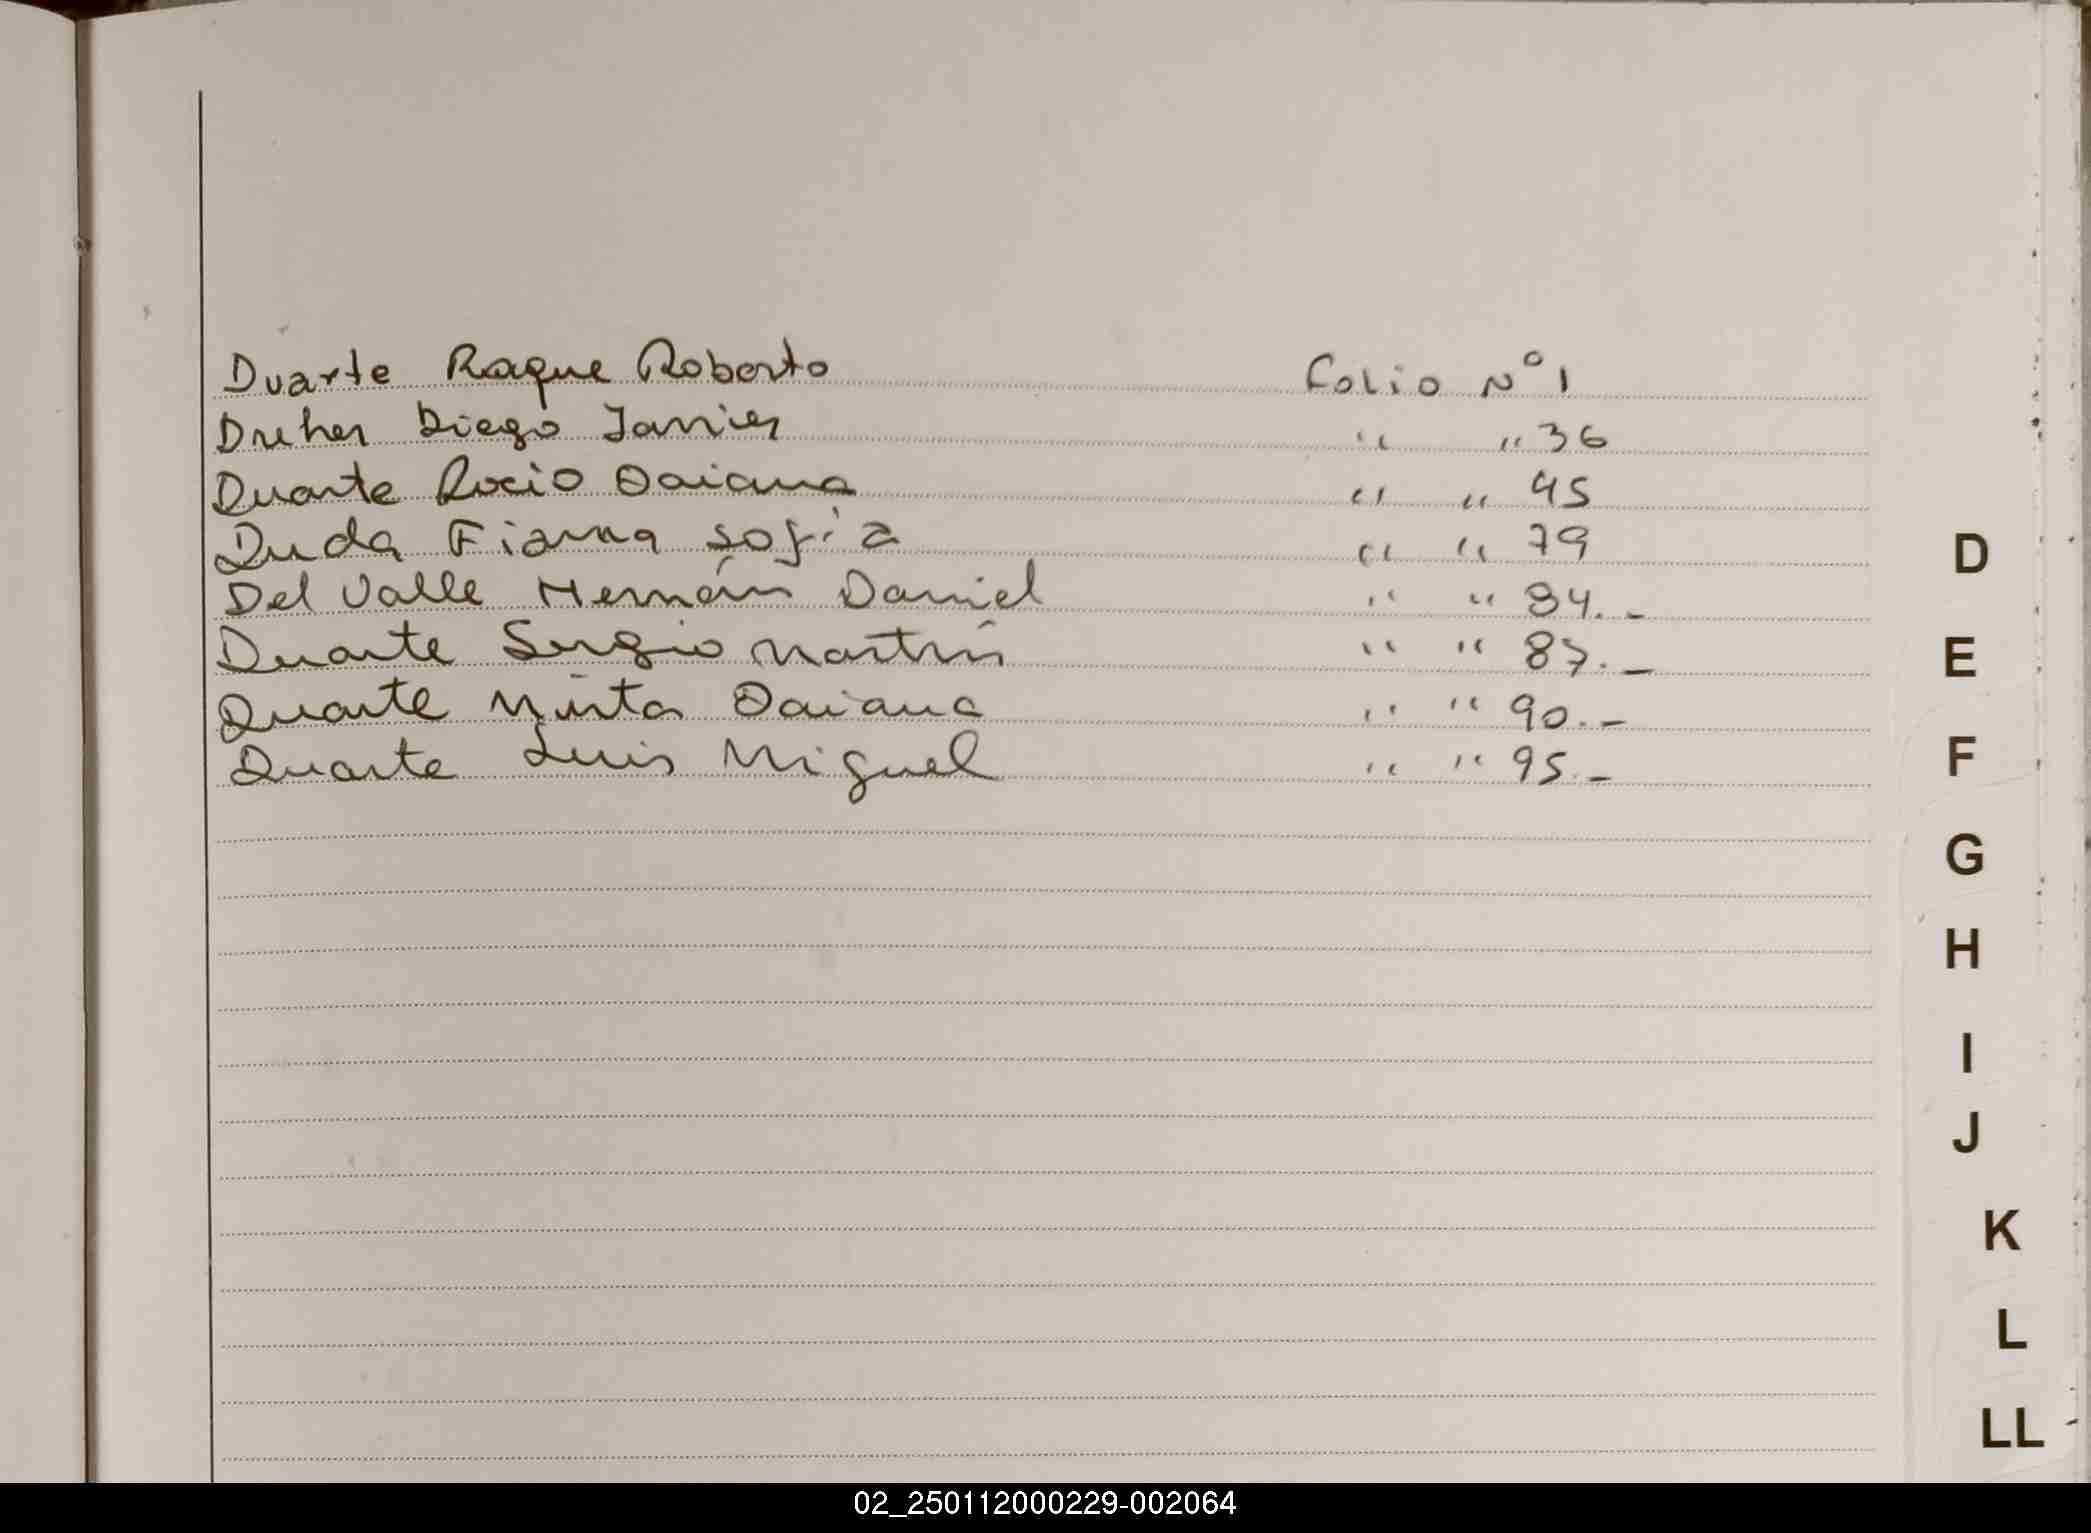 Duarte Raque Roberto Folio N° 1
Dreher Diego Javier " " 36
Duarte Rocio Daiana " " 45
Duda Fianna Sofía " " 79
Del Valle Hernán Daniel " " 84.-
Duarte Sergio Martín " " 87.-
Duarte Mirta Daiana " " 90.-
Duarte Luis Miguel " " 95.-
D
E
F
G
H
I
J
K
L
LL
02_250112000229-002064